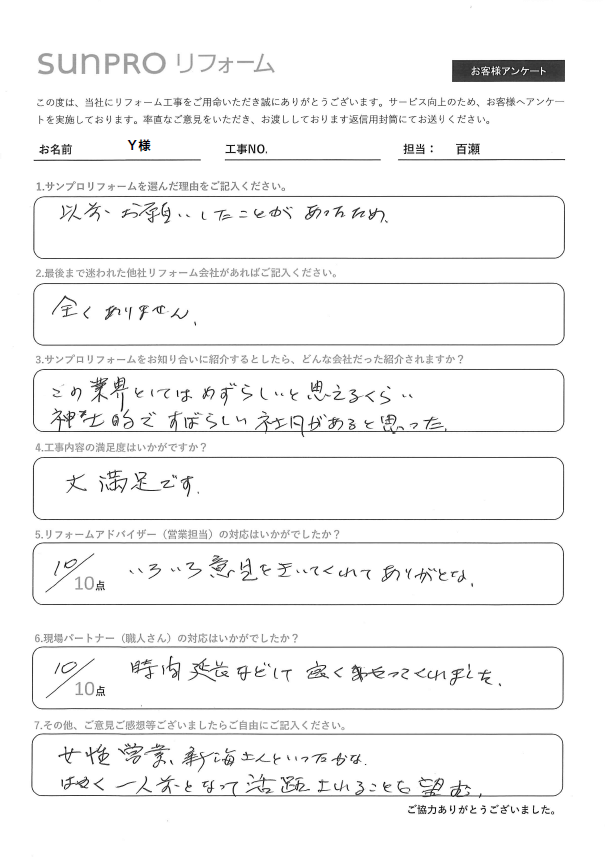 sunPRO リフォーム
お客様アンケート
この度は、当社にリフォーム工事をご用命いただき誠にありがとうございます。サービス向上のため、お客様へアンケー
トを実施しております。率直なご意見をいただき、お渡ししております返信用封筒にてお送りください。
お名前 Y様 工事NO. 担当： 百瀬
1.サンプロリフォームを選んだ理由をご記入ください。
以前お願いしたことがあったため。
2.最後まで迷われた他社リフォーム会社があればご記入ください。
全くありません。
3.サンプロリフォームをお知り合いに紹介するとしたら、どんな会社だった紹介されますか？
この業界としてはめずらしいと思えるくらい
紳士的ですばらしい社員があると思った。
4.工事内容の満足度はいかがですか？
大満足です。
5.リフォームアドバイザー（営業担当）の対応はいかがでしたか？
10/10点 いろいろ意見をきいてくれてありがとな。
6.現場パートナー（職人さん）の対応はいかがでしたか？
10/10点 時間延長などして良くやってくれました。
7.その他、ご意見ご感想等ございましたらご自由にご記入ください。
女性営業、新海さんといったかな。
はやく一人前となって活躍されることを望む。
ご協力ありがとうございました。